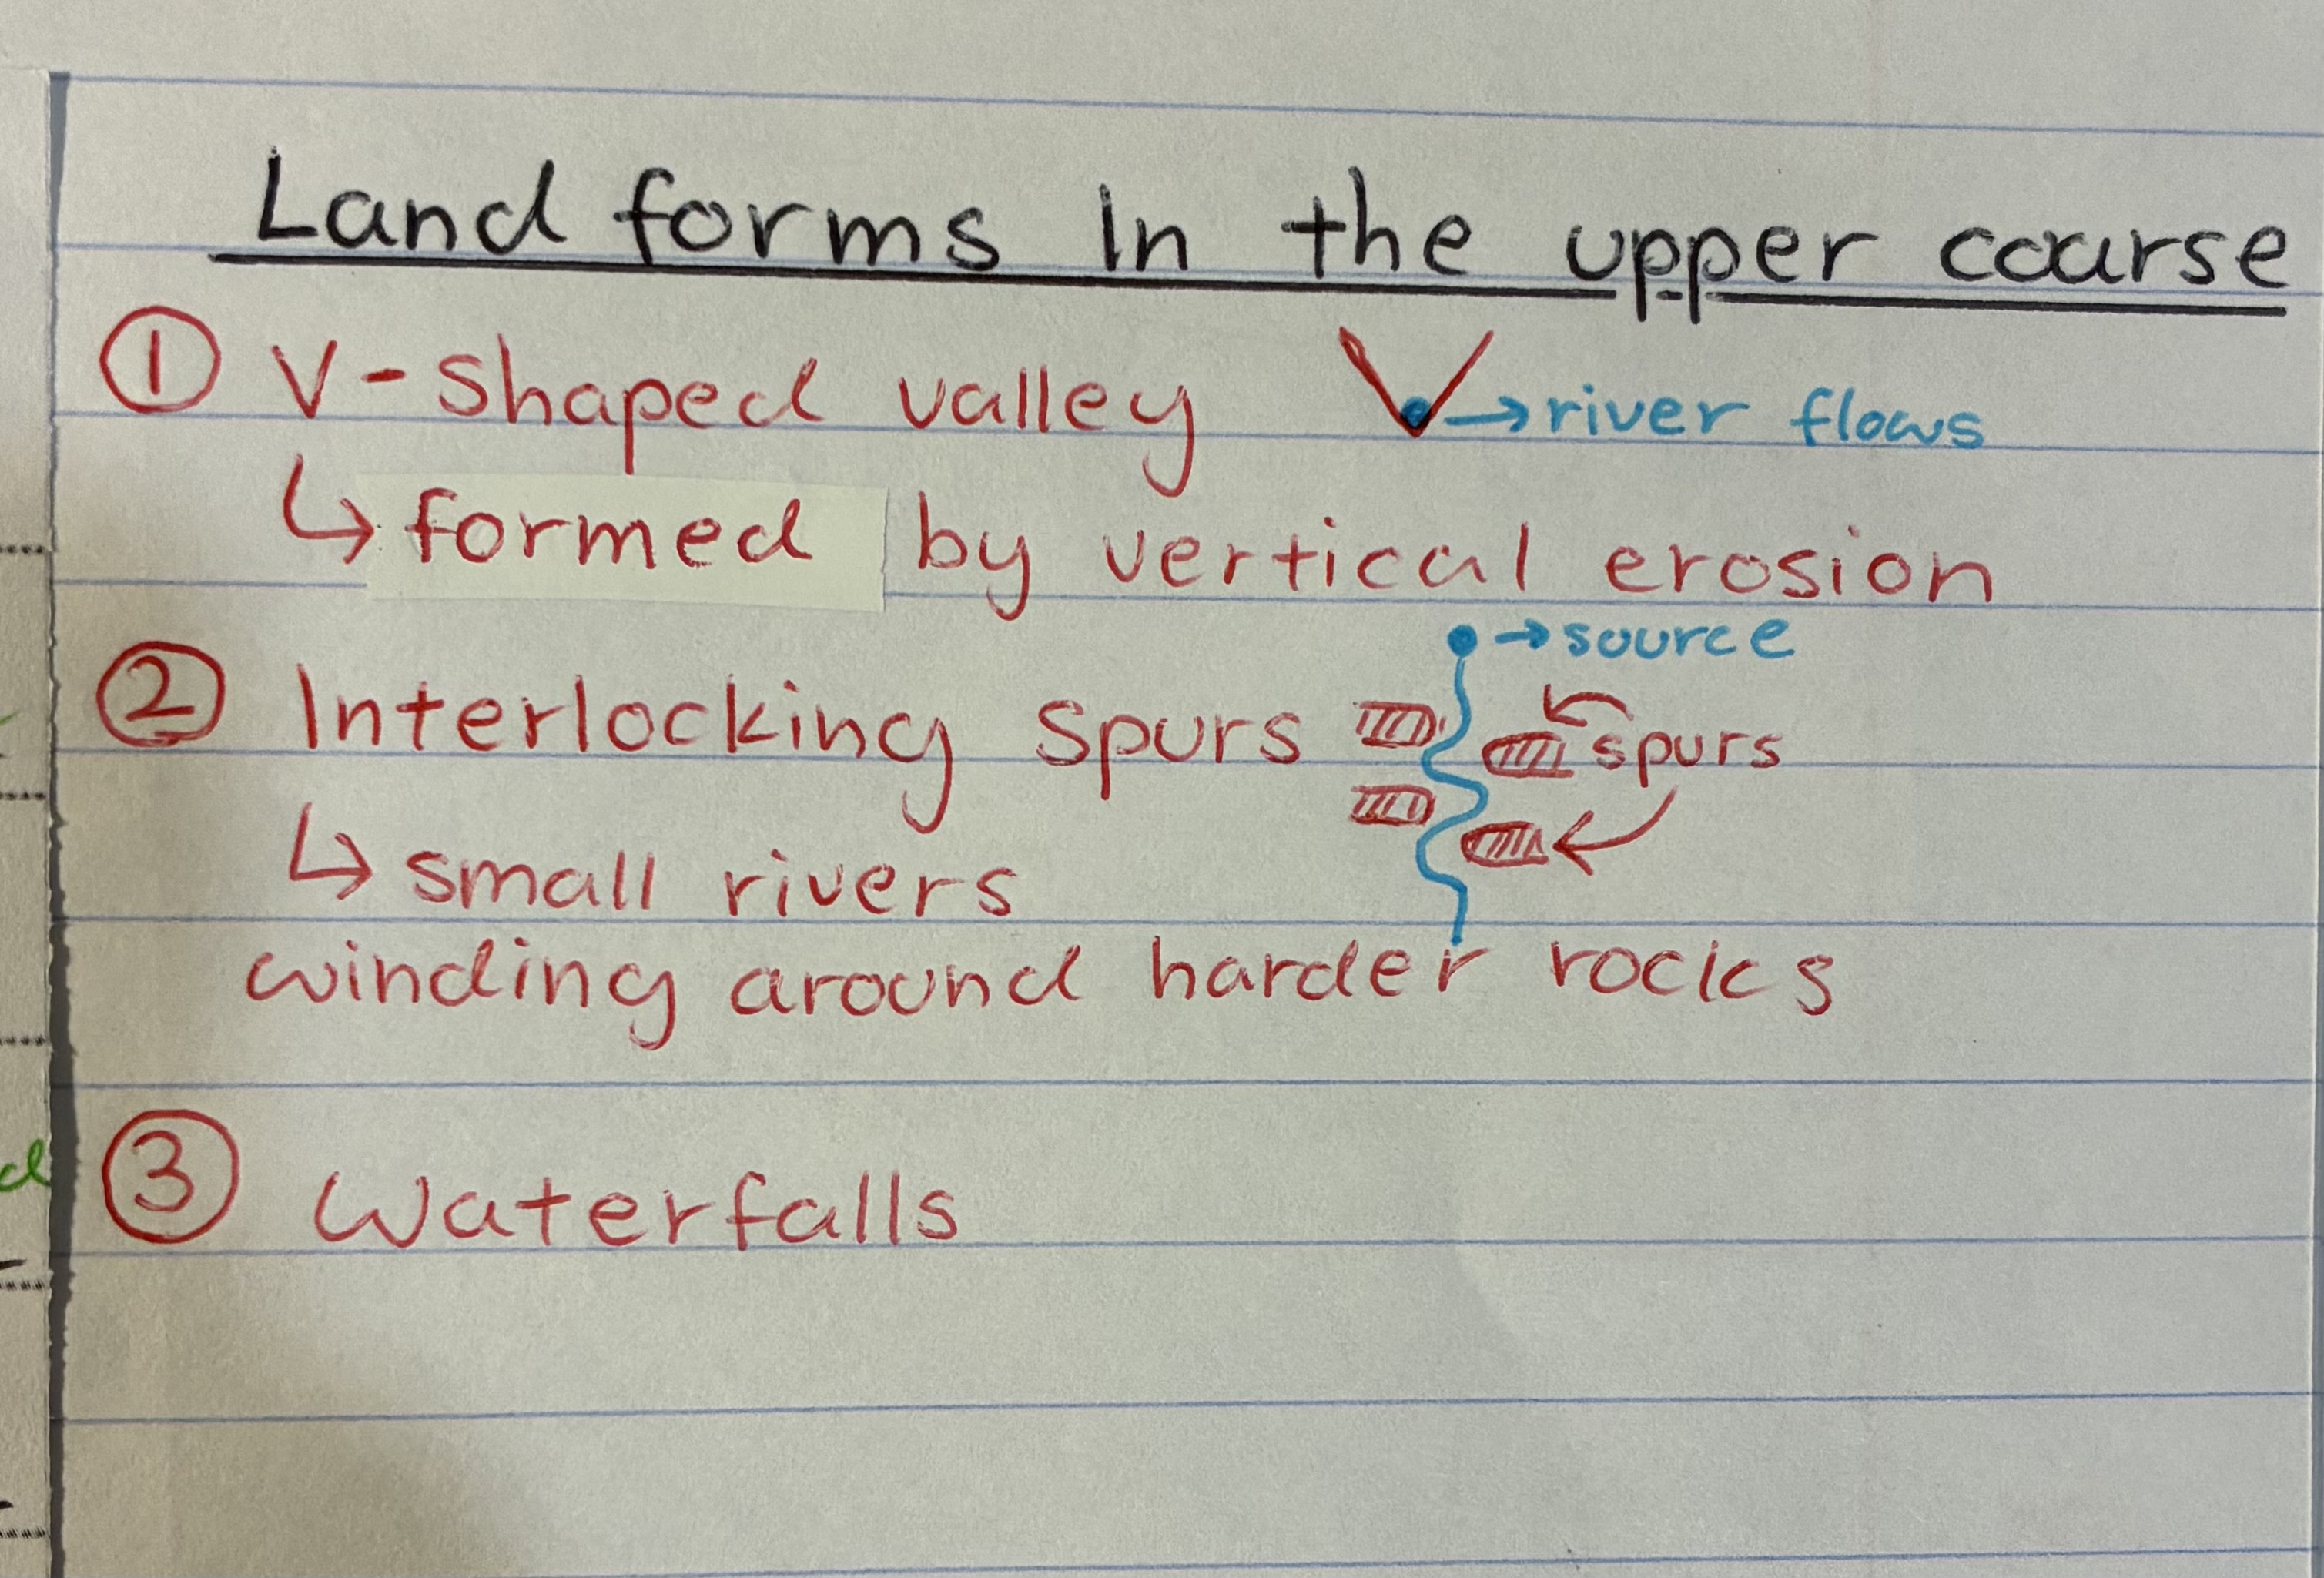 Land forms In the upper course
① V-shaped valley → river flows
↳ formed by vertical erosion
→ source
② Interlocking spurs spurs
↳ small rivers
winding around harder rocks
d
③ Waterfalls